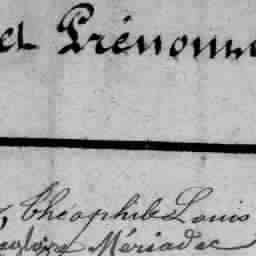 et Prénoms
, Théophile Louis
Mériadec